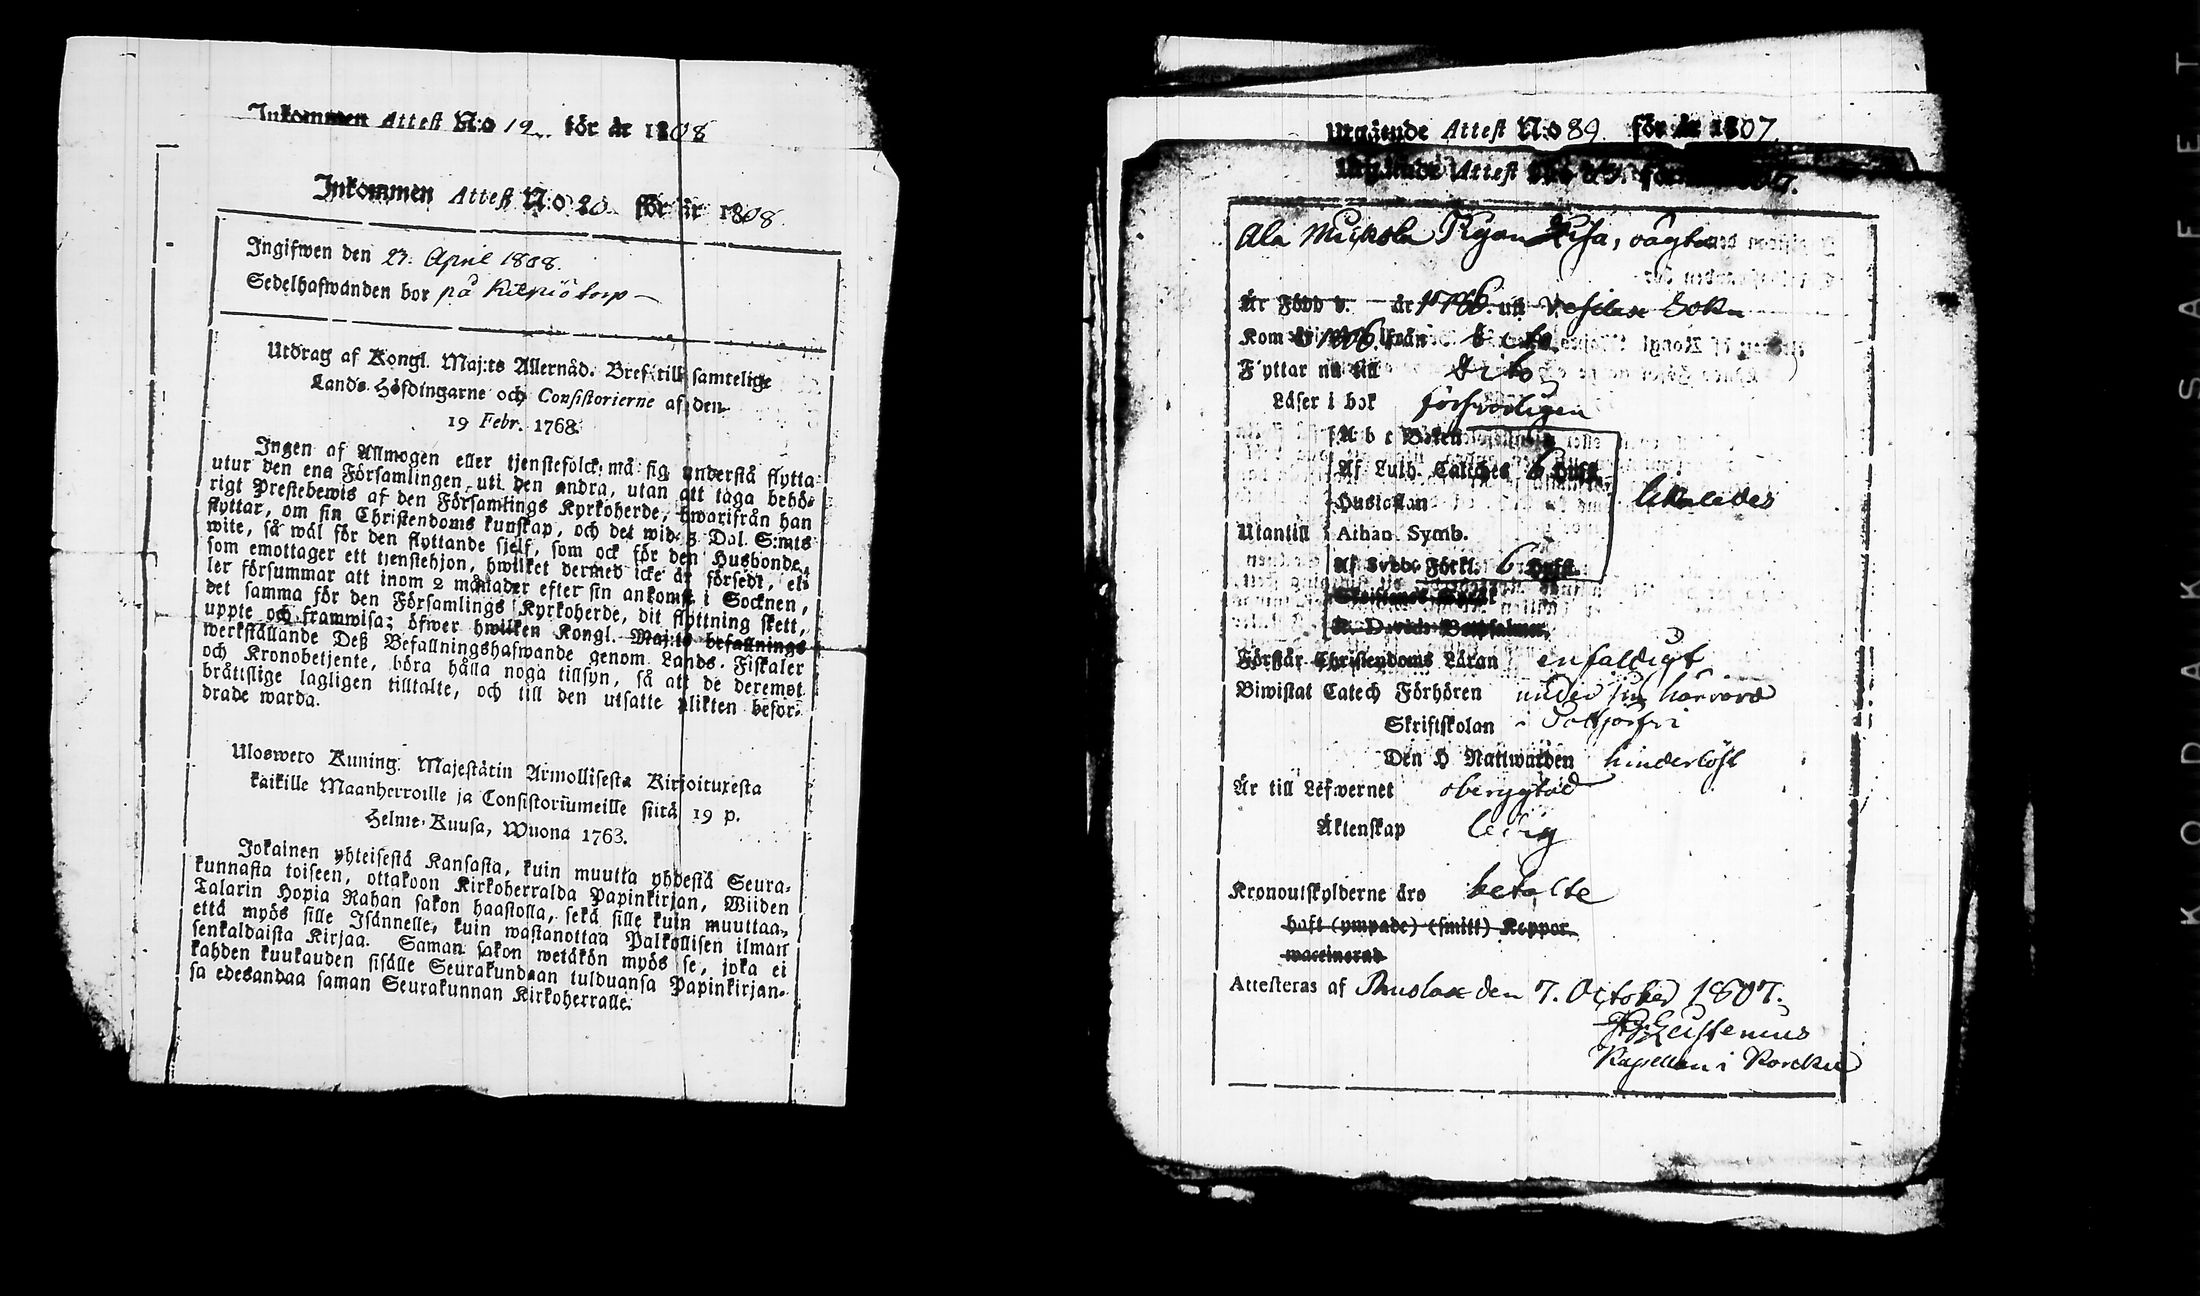 Inkommen Attest N:o 19. för år 1808
Inkommen Attest N:o 20. för år 1808.
Ingifwen den 23. April 1808.
Sedelhafwanden bor på torp
Utdrag af Kongl. Maj:ts Allernåd. Bref till samtelige
Lands-Höfdingarne och Consistorierne af den
19 Febr. 1768.
Ingen af Allmogen eller tjenstefolck må sig understå flytta
utur den ena Församlingen uti den andra, utan att taga behö-
rigt Prestebewis af den Församlings Kyrkoherde, hwarifrån han
flyttar, om sin Christendoms kunskap, och det wid 5 Dal. S:mts
wite, så wäl för den flyttande sjelf, som ock för den Husbonde,
som emottager ett tjenstehjon, hwilket dermed icke är försedt, el-
ler försummar att inom 2 månader efter sin ankomst i Socknen,
det samma för den Församlings Kyrkoherde, dit flyttning skett,
uppte och framwisa; öfwer hwilken Kongl. Maj:ts befallnings
werkställande Deß Befallningshafwande genom Lands-Fiskaler
och Kronobetjente, böra hålla noga tillsyn, så att de deremot
bråttslige lagligen tilltalte, och till den utsatte plikten befor-
drade warda.
Ulosweto Kuning. Majestätin Armollisesta Kirjoituxesta
kaikille Maanherroille ja Consistoriumeille siitä 19 p.
Helme-Kuusa, Wuona 1763.
Jokainen yhteisestä Kansasta, kuin muutta yhdestä Seura-
kunnasta toiseen, ottakoon Kirkoherralda Papinkirjan, Wiiden
Talarin Hopia Rahan sakon haastolla, sekä sille kuin muuttaa,
että myös sille Isännelle, kuin wastanottaa Palkollisen ilman
senkaldaista Kirjaa. Saman sakon wetäkön myös se, joka ei
kahden kuukauden sisälle Seurakundaan tulduansa Papinkirjan-
sa edesandaa saman Seurakunnan Kirkoherralle.
Utgående Attest N:o 89. för år 1807.
Utgående Attest
Ala
Är Född d. år 1786. uti Vesilax Sokn
Kom år 1806. ifrån dito
Flyttar nu till dito
Läser i bok försvarligen
A b c Boken
Af Luth. Catches 6 Hufst.
Hustaflan likaledes
Utantill Athan. Symb.
Af Svebe. Förkl. 6 Hufst.
K. Davids Botpsalmer.
Förstår Christendoms Läran enfaldigt
Biwistat Catech Förhören under sin härvaro
Skriftskolan
Den H Nattwarden hinderlöst
Är till Lefwernet oberygtad
Äktenskap ledig
Kronoutskylderne äro betalte
haft (ympade) (smitt) Koppor
waccinerad
Attesteras af den 7. October 1807.
Kapellan i
KODAK SAFET